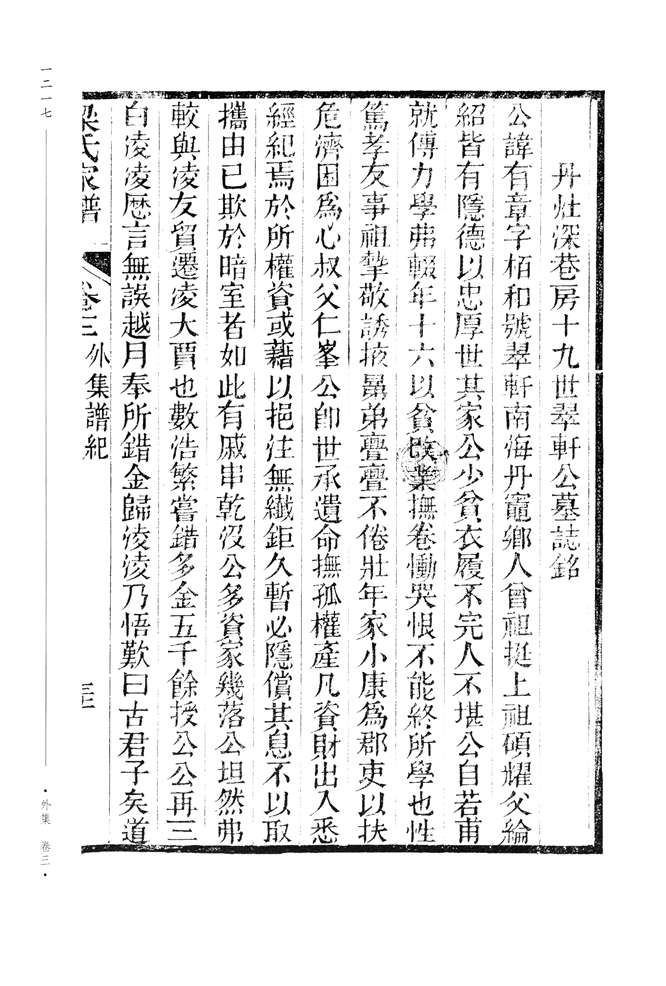 丹灶深巷房十九世翠軒公墓誌銘
公諱有章字栢和號翠軒南海丹竈鄉人曾祖挺上祖碩耀父綸
紹皆有隱德以忠厚世其家公少貧衣履不完人不堪公自若甫
就傅力學弗輟年十六以貧改業撫卷慟哭恨不能終所學也性
篤孝友事祖摯敬誘掖羣弟亹亹不倦壯年家小康為郡吏以扶
危濟困為心叔父仁峯公卽世承遺命撫孤權產凡資財出入悉
經紀焉於所權資或藉以挹注無纖鉅久暫必隱償其息不以取
攜由已欺於暗室者如此有戚串乾沒公多資家幾落公坦然弗
較與凌友貿遷凌大賈也數浩繁嘗錯多金五千餘授公公再三
白凌凌歷言無誤越月奉所錯金歸凌凌乃悟歎曰古君子矣道
梁氏家譜 卷三 外集譜紀 三
一二一七
·外集 卷三·